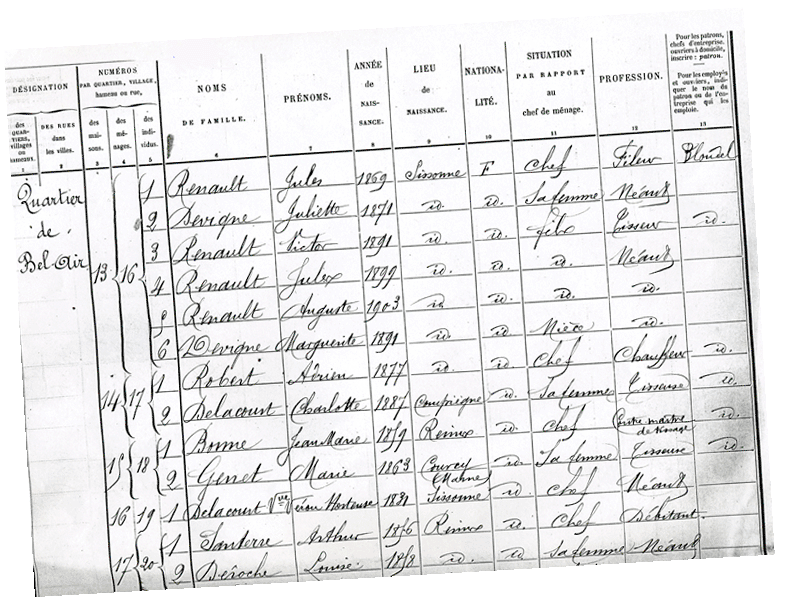 DÉSIGNATION
NUMÉROS
PAR QUARTIER, VILLAGE,
hameau ou rue,
NOMS
DE FAMILLE.
PRÉNOMS.
ANNÉE
de
NAIS-
SANCE.
LIEU
de
NAISSANCE.
NATIONA-
LITÉ.
SITUATION
PAR RAPPORT
au
chef de ménage.
PROFESSION.
Pour les patrons,
chefs d'entreprise,
ouvriers à domicile,
inscrire : patron.
Pour les employés
et ouvriers, indi-
quer le nom du
patron ou de l'en-
treprise qui les
emploie.
des
QUAR-
TIERS,
villages
ou
hameaux.
DES RUES
dans
les villes.
des
mai-
sons.
des
mé-
nages.
des
indi-
vidus.
1 2 3 4 5 6 7 8 9 10 11 12 13
Quartier
de
Bel-Air
13 16 1 Renault Jules 1869 Sissonne F Chef Fileur Blondel
2 Devigne Juliette 1871 id. id. Sa femme Néant
3 Renault Victor 1891 id. id. fils Tisseur id.
4 Renault Jules 1899 id. id. id. Néant
5 Renault Auguste 1903 id. id. id. id.
6 Devigne Marguerite 1891 id. id. Nièce id.
14 17 1 Robert Adrien 1877 id. id. Chef Chauffeur id.
2 Delacourt Charlotte 1887 Compiègne id. Sa femme Tisseuse id.
15 18 1 Bonne Jean Marie 1859 Reims id. Chef Contre maître de tissage id.
2 Genet Marie 1863 Courcy (Marne) id. Sa femme Tisseuse id.
16 19 1 Delacourt Vve Hortense 1831 Sissonne id. Chef Néant
17 20 1 Santerre Arthur 1856 Reims id. Chef Débitant
2 Deroche Louise 1858 id. id. Sa femme Néant